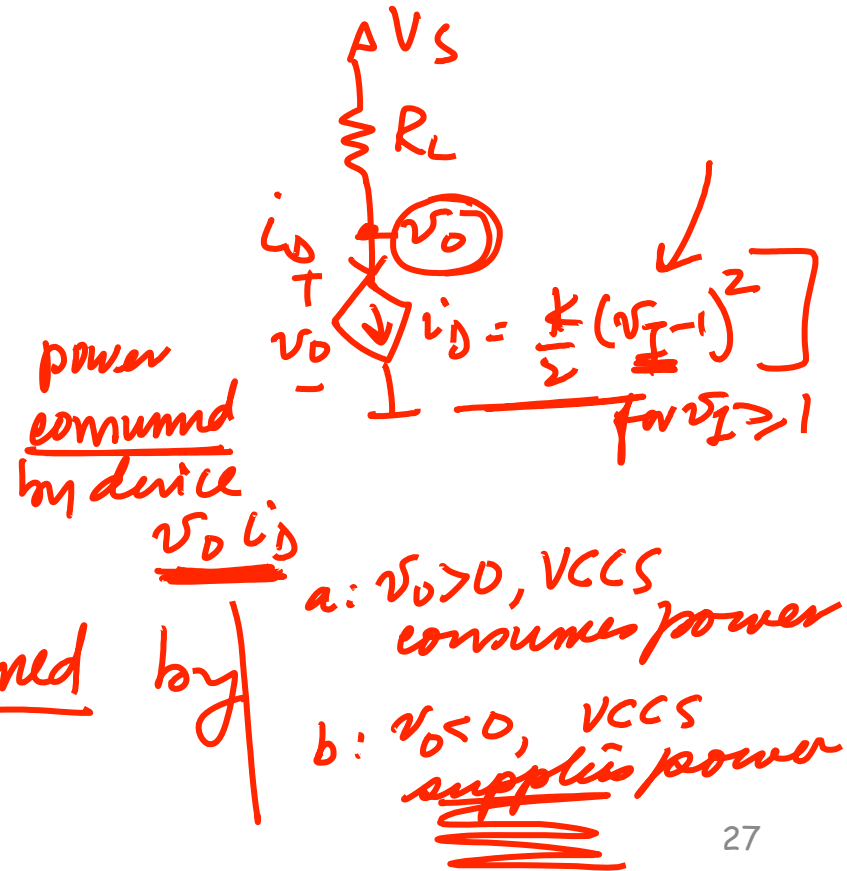 VS
RL
iD
vO
+
vO
-
iD = K/2 (vI-1)²
for vI ≥ 1
power
consumed
by device
vO iD
a: vO>0, VCCS
consumes power
ned by
b: vO<0, VCCS
supplies power
27